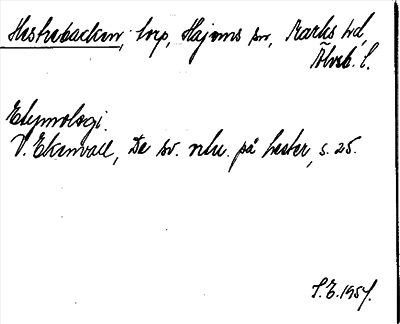 Hestrabacken, torp, Hajoms sn, Marks hd,
Älvsb. l.
Etymologi.
V. Ekenvall, De sv. nbn. på hester, s. 25.
S.E. 1957.